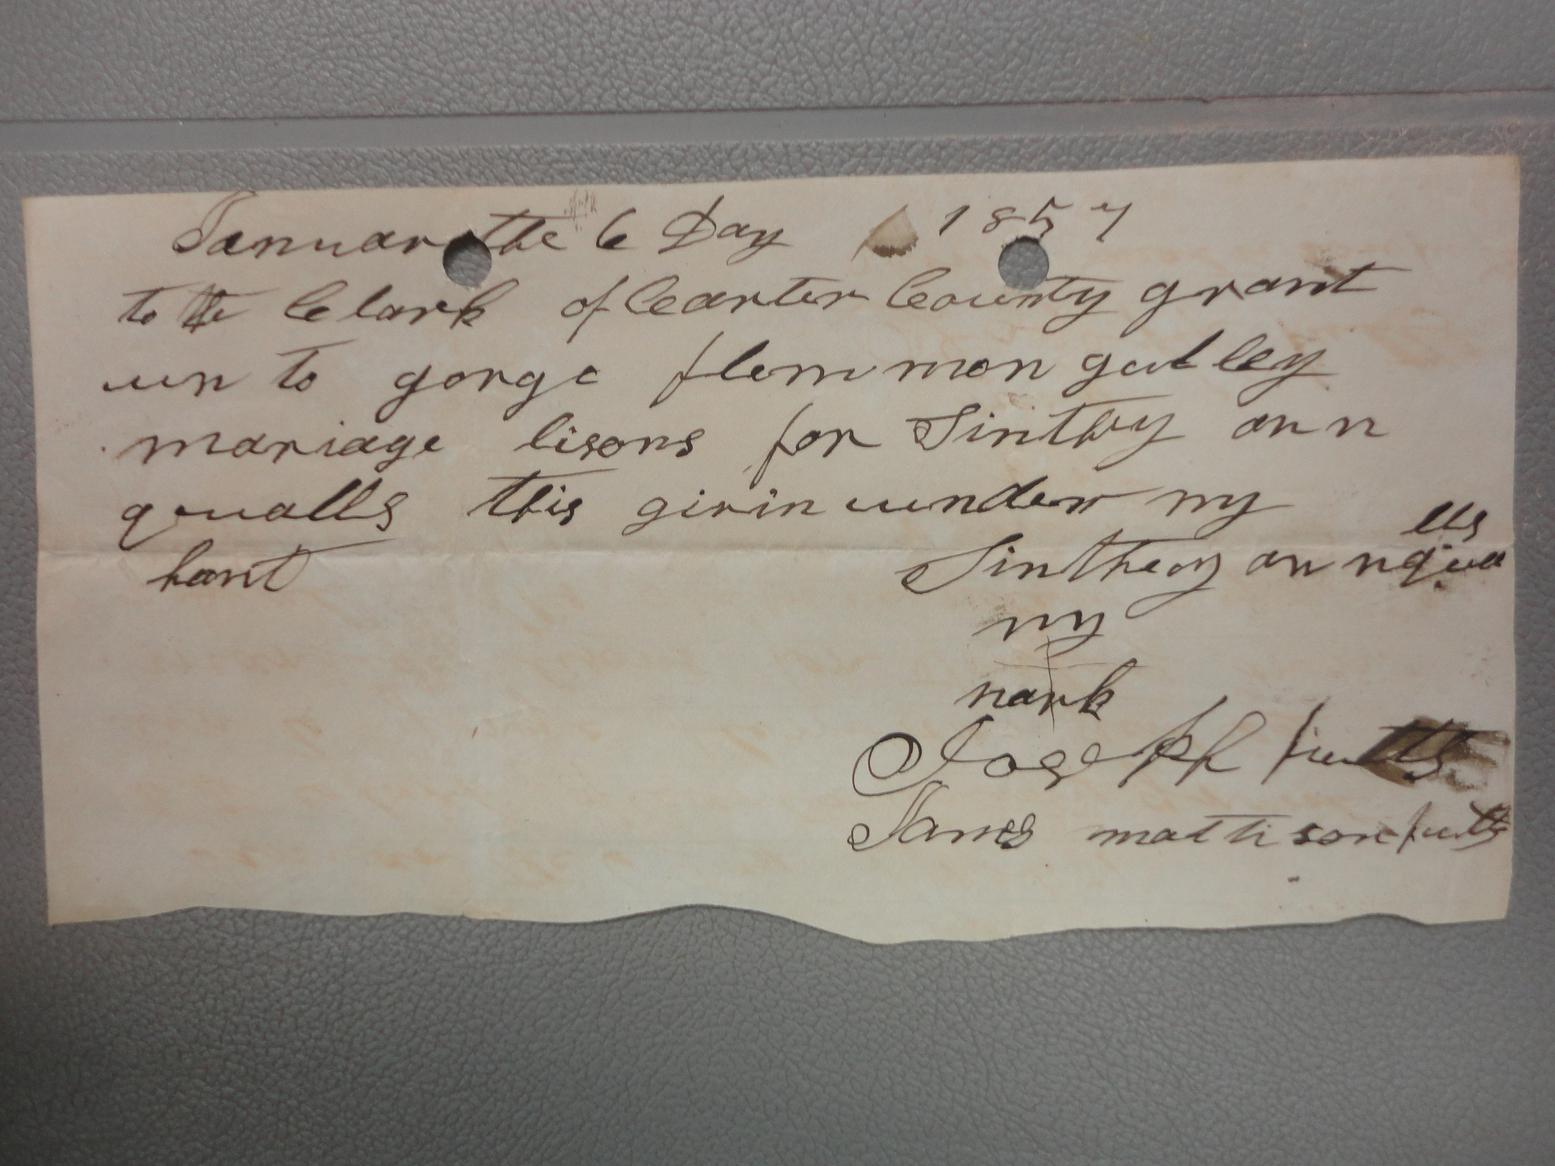 January the 6 Day 1857
to the Clark of Carter County grant
un to gorge flemmon gulley
mariage lisons for Sinthy ann
qualls this givin under my
hant
Sinthey ann qualls
my
mark
Joseph
James mattison